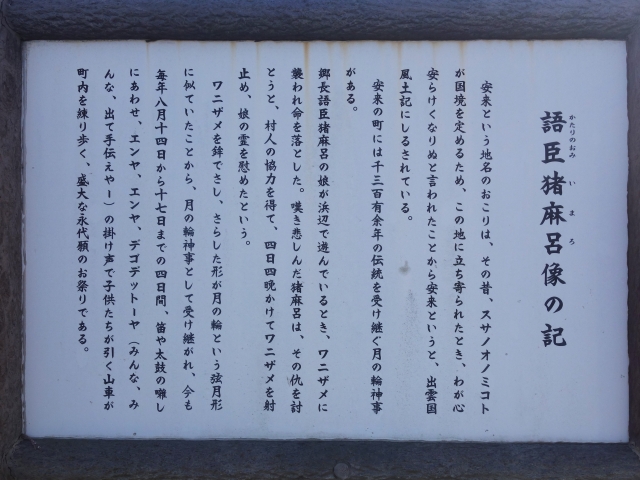 語臣猪麻呂像の記
かたりのおみ いまろ
安来という地名のおこりは、その昔、スサノオノミコト
が国境を定めるため、この地に立ち寄られたとき、わが心
安らけくなりぬと言われたことから安来というと、出雲国
風土記にしるされている。
安来の町には千三百有余年の伝統を受け継ぐ月の輪神事
がある。
郷長語臣猪麻呂の娘が浜辺で遊んでいるとき、ワニザメに
襲われ命を落とした。嘆き悲しんだ猪麻呂は、その仇を討
とうと、村人の協力を得て、四日四晩かけてワニザメを射
止め、娘の霊を慰めたという。
ワニザメを鉾でさし、さらした形が月の輪という弦月形
に似ていたことから、月の輪神事として受け継がれ、今も
毎年八月十四日から十七日までの四日間、笛や太鼓の囃し
にあわせ、エンヤ、エンヤ、デゴデットーヤ（みんな、み
んな、出て手伝えやー）の掛け声で子供たちが引く山車が
町内を練り歩く、盛大な永代願のお祭りである。